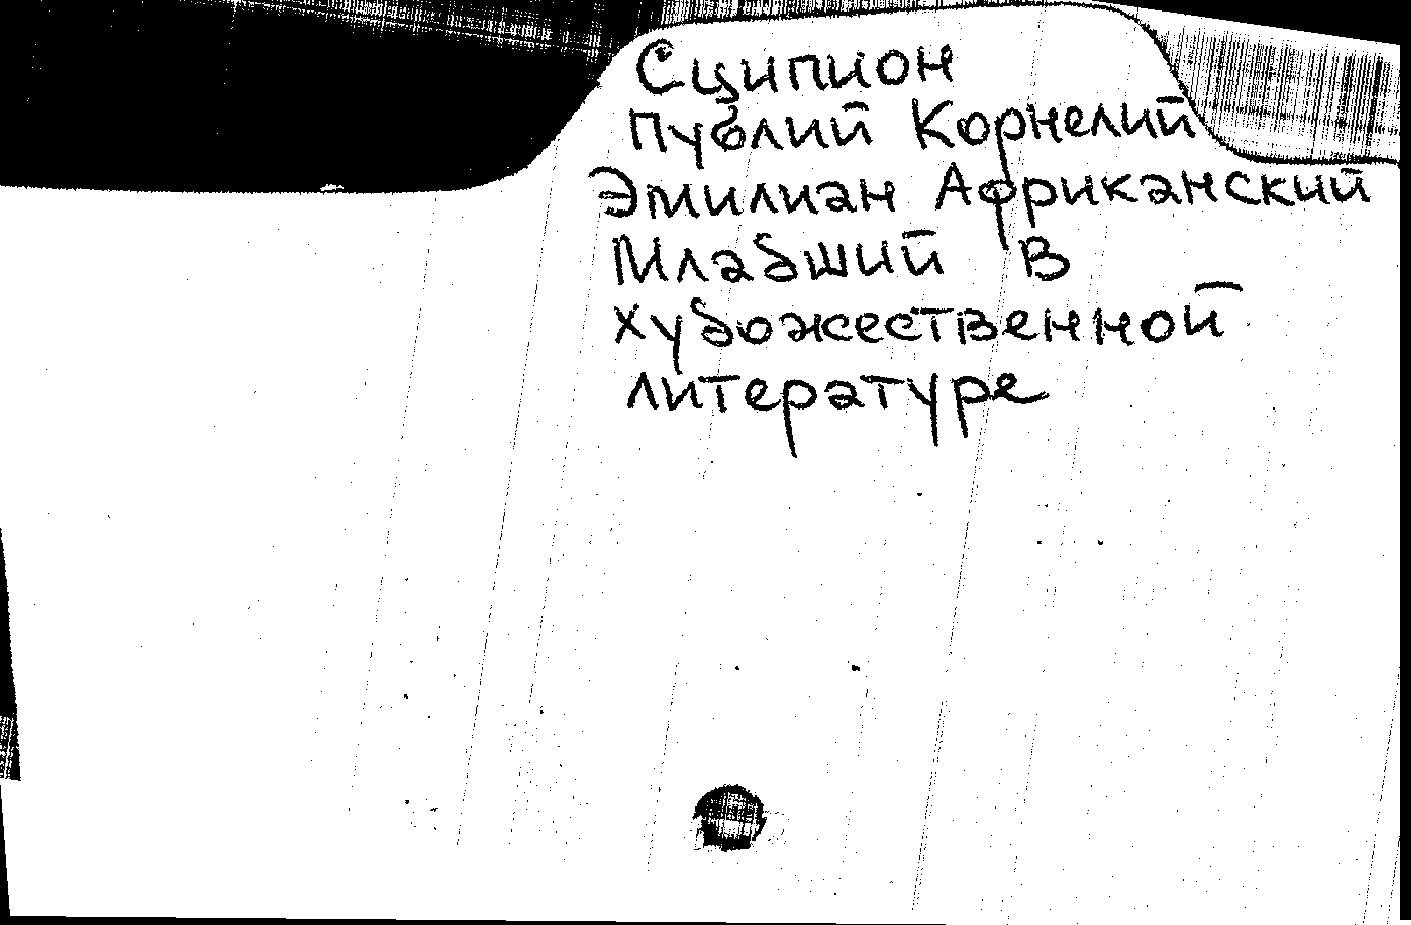 Сципион
Публий Корнелий
Эмилиан Африканский
Младший в
художественной
литературе